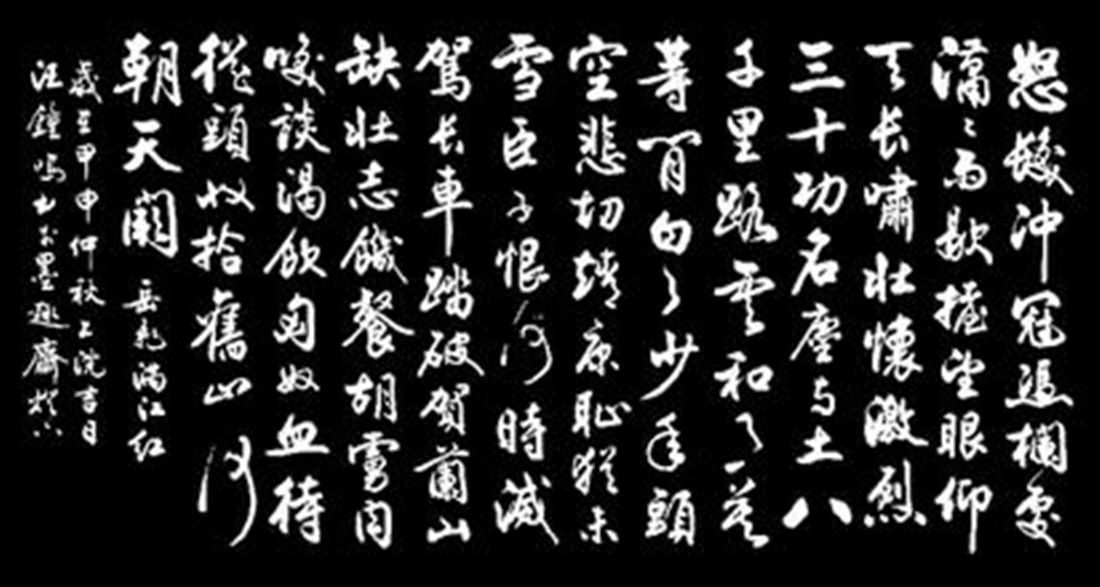 怒髮沖冠憑欄處
瀟〻雨歇擡望眼仰
天长嘯壮懷激烈
三十功名塵与土八
千里路雲和月莫
等閒白了少年頭
空悲切靖康恥猶未
雪臣子恨何時滅
駕长車踏破賀蘭山
缺壮志饑餐胡虜肉
笑談渴飲匈奴血待
從頭收拾舊山河
朝天闕 岳飛滿江红
歲在甲申仲秋上浣吉日
汪鐘鳴書於墨趣齋